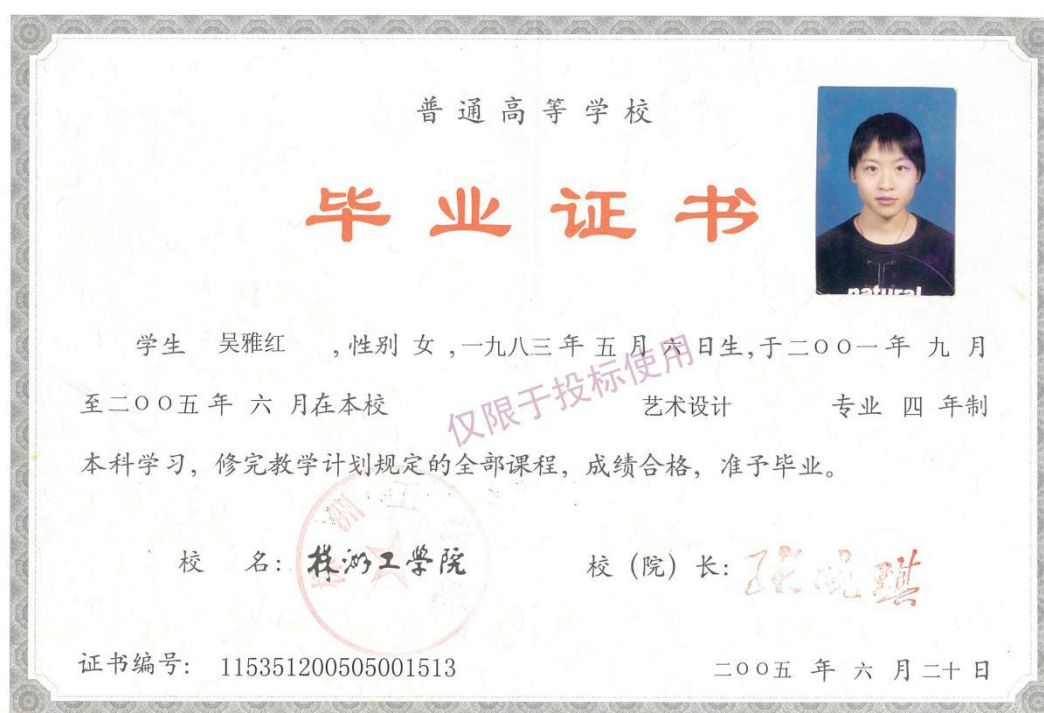 普通高等学校
毕业证书
natural
学生 吴雅红 ,性别 女 ,一九八三年 五 月 六 日生,于二〇〇一年 九 月
至二〇〇五年 六 月在本校 艺术设计 专业 四 年制
仅限于投标使用
本科学习, 修完教学计划规定的全部课程, 成绩合格, 准予毕业。
校 名: 株洲工学院 校 (院) 长: 张晓琪
证书编号: 115351200505001513 二〇〇五 年 六 月 二十 日